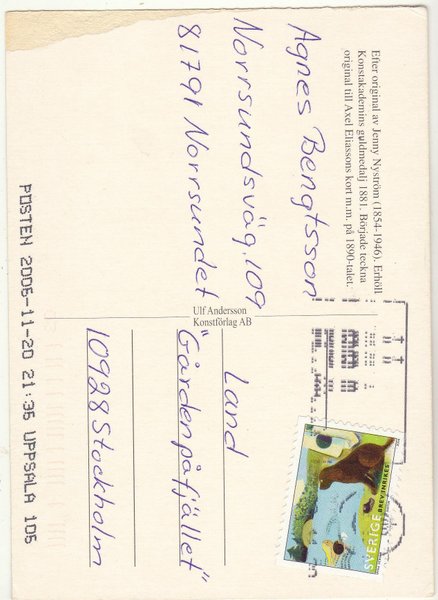 Efter original av Jenny Nyström (1854-1946). Erhöll
Konstakademins guldmedalj 1881. Började teckna
original till Axel Eliassons kort m.m. på 1890-talet.
Agnes Bengtsson
Norrsundsväg.109
81791 Norrsundet
Ulf Andersson
Konstförlag AB
Land
"Gårdenpåfjället"
10928 Stockholm
SVERIGE BREV INRIKES
POSTEN 2005-11-20 21:35 UPPSALA 105